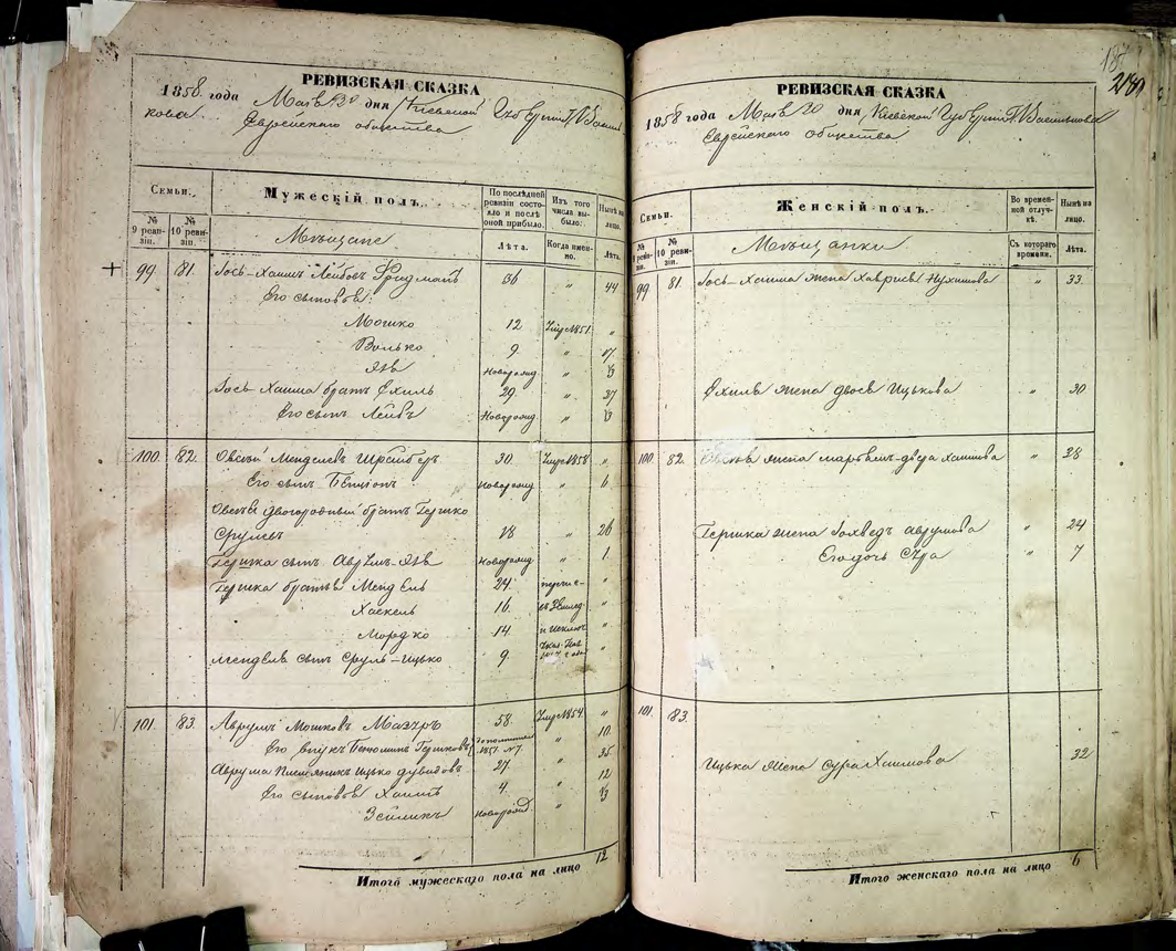 РЕВИЗСКАЯ СКАЗКА
1858 года Мая 20 дня Киевской Губерніи Г. Василь
кова Еврейскаго общества
Семьи.
Мужескій полъ.
По послѣдней ревизіи состояло и послѣ оной прибыло.
Изъ того числа выбыло:
Нынѣ на лицо.
№ 9 ревизіи.
№ 10 ревизіи.
Мѣщане
Лѣта.
Когда именно.
Лѣта.
99. 81. Іось-Хаимъ Лейбовъ Фридманъ 36 " 44
Его сыновья:
Мошко 12 Умре 1851 "
Волько 9 " 17
Новорожд. "
Іось-Хаима братъ Ехиль 29. " 37
Его сынъ Лейбъ Новорожд. "
100. 82. Овсей Менделевъ Шрайберъ 30. Умре 1858 "
Его сынъ Бенціонъ Новорожд. " 6
Овсея двоюродный братъ Гершко
Срулевъ 18 " 26
Гершка сынъ Аврумъ Новорожд. " 1.
Гершка братья Мендель 24.
Хаскель 16. "
Мордко 14. и исключ "
Менделя сынъ Сруль-Ицько 9. "
101. 83. Аврумъ Мошковъ Мазуръ 58. Умре 1854. "
Его внукъ Беніоминъ Гершковъ 1851. №7. " 10.
Аврума племянникъ Ицько Дувидовъ 27 " 35
Его сыновья Хаимъ 4. " 12
Зейликъ Новорожд. "
Итого мужескаго пола на лицо 12
РЕВИЗСКАЯ СКАЗКА
1858 года Мая 20 дня Киевской Губерніи Г. Василькова
Еврейскаго общества
Семьи.
Женскій полъ.
Во временной отлучкѣ.
Нынѣ на лицо.
№ 9 ревизіи.
№ 10 ревизіи.
Мѣщанки
Съ котораго времени.
Лѣта.
99 81. Іось-Хаима жена Хаврися Нухимова " 33.
Ехиля жена Двося Ицькова " 30
100. 82. Овсея жена Хаимова " 28
Гершка жена Аврумова " 24
Его дочь Сура " 7
101. 83.
Ицька жена Сура Хаимова 32
Итого женскаго пола на лицо 6